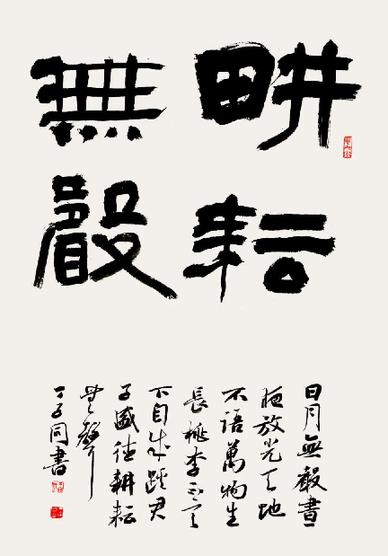 畊耘
無殸
日月無殸晝
夜放光天地
不語萬物生
長桃李不言
下自成蹊君
子盛德耕耘
無聲
丁子同書